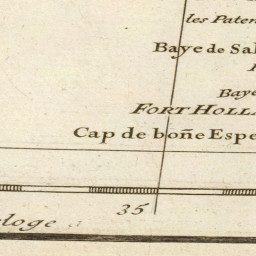 les Paten
Baye de Sal
Baye
FORT HOLLA
Cap de boñe Espe
35
eloge